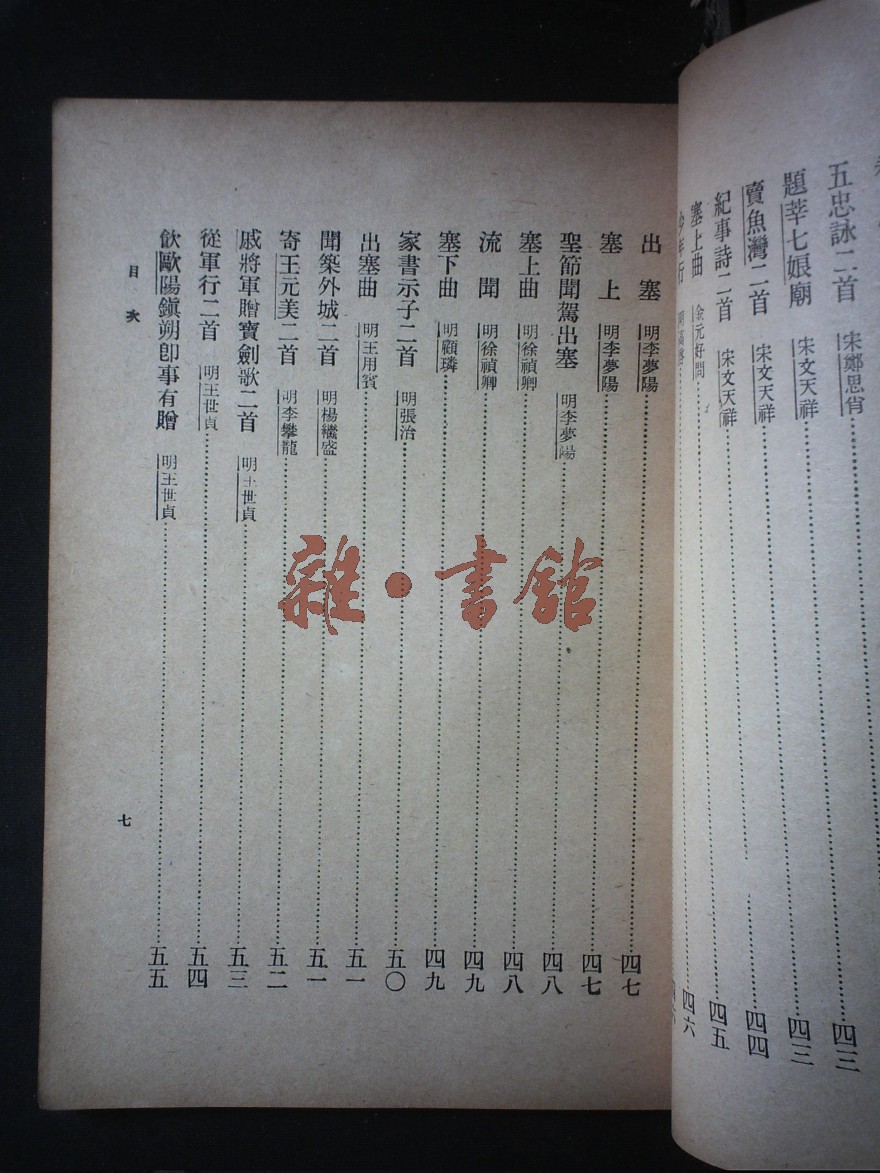 五忠詠二首 宋鄭思肖 四三
題莘七娘廟 宋文天祥 四三
賣魚灣二首 宋文天祥 四四
紀事詩二首 宋文天祥 四五
塞上曲 金元好問 四六
少年行 明高啓
出塞 明李夢陽 四七
塞上 明李夢陽 四七
聖節聞駕出塞 明李夢陽 四八
塞上曲 明徐禎卿 四八
流聞 明徐禎卿 四九
塞下曲 明顧璘 四九
家書示子二首 明張治 五〇
出塞曲 明王用賓 五一
聞築外城二首 明楊繼盛 五一
寄王元美二首 明李攀龍 五二
戚將軍贈寶劍歌二首 明王世貞 五三
從軍行二首 明王世貞 五四
飲歐陽鎭朔卽事有贈 明王世貞 五五
目次
七
雜·書館